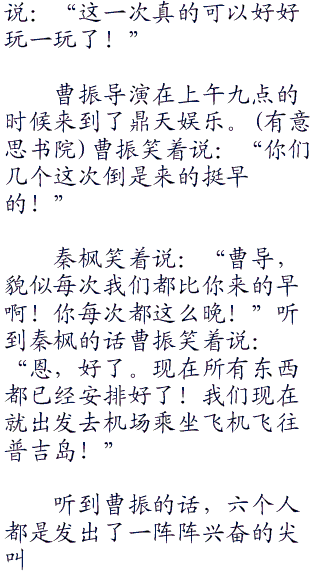 说：“这一次真的可以好好
玩一玩了！”
曹振导演在上午九点的
时候来到了鼎天娱乐。(有意
思书院)曹振笑着说：“你们
几个这次倒是来的挺早
的！”
秦枫笑着说：“曹导，
貌似每次我们都比你来的早
啊！你每次都这么晚！”听
到秦枫的话曹振笑着说：
“恩，好了。现在所有东西
都已经安排好了！我们现在
就出发去机场乘坐飞机飞往
普吉岛！”
听到曹振的话，六个人
都是发出了一阵阵兴奋的尖
叫